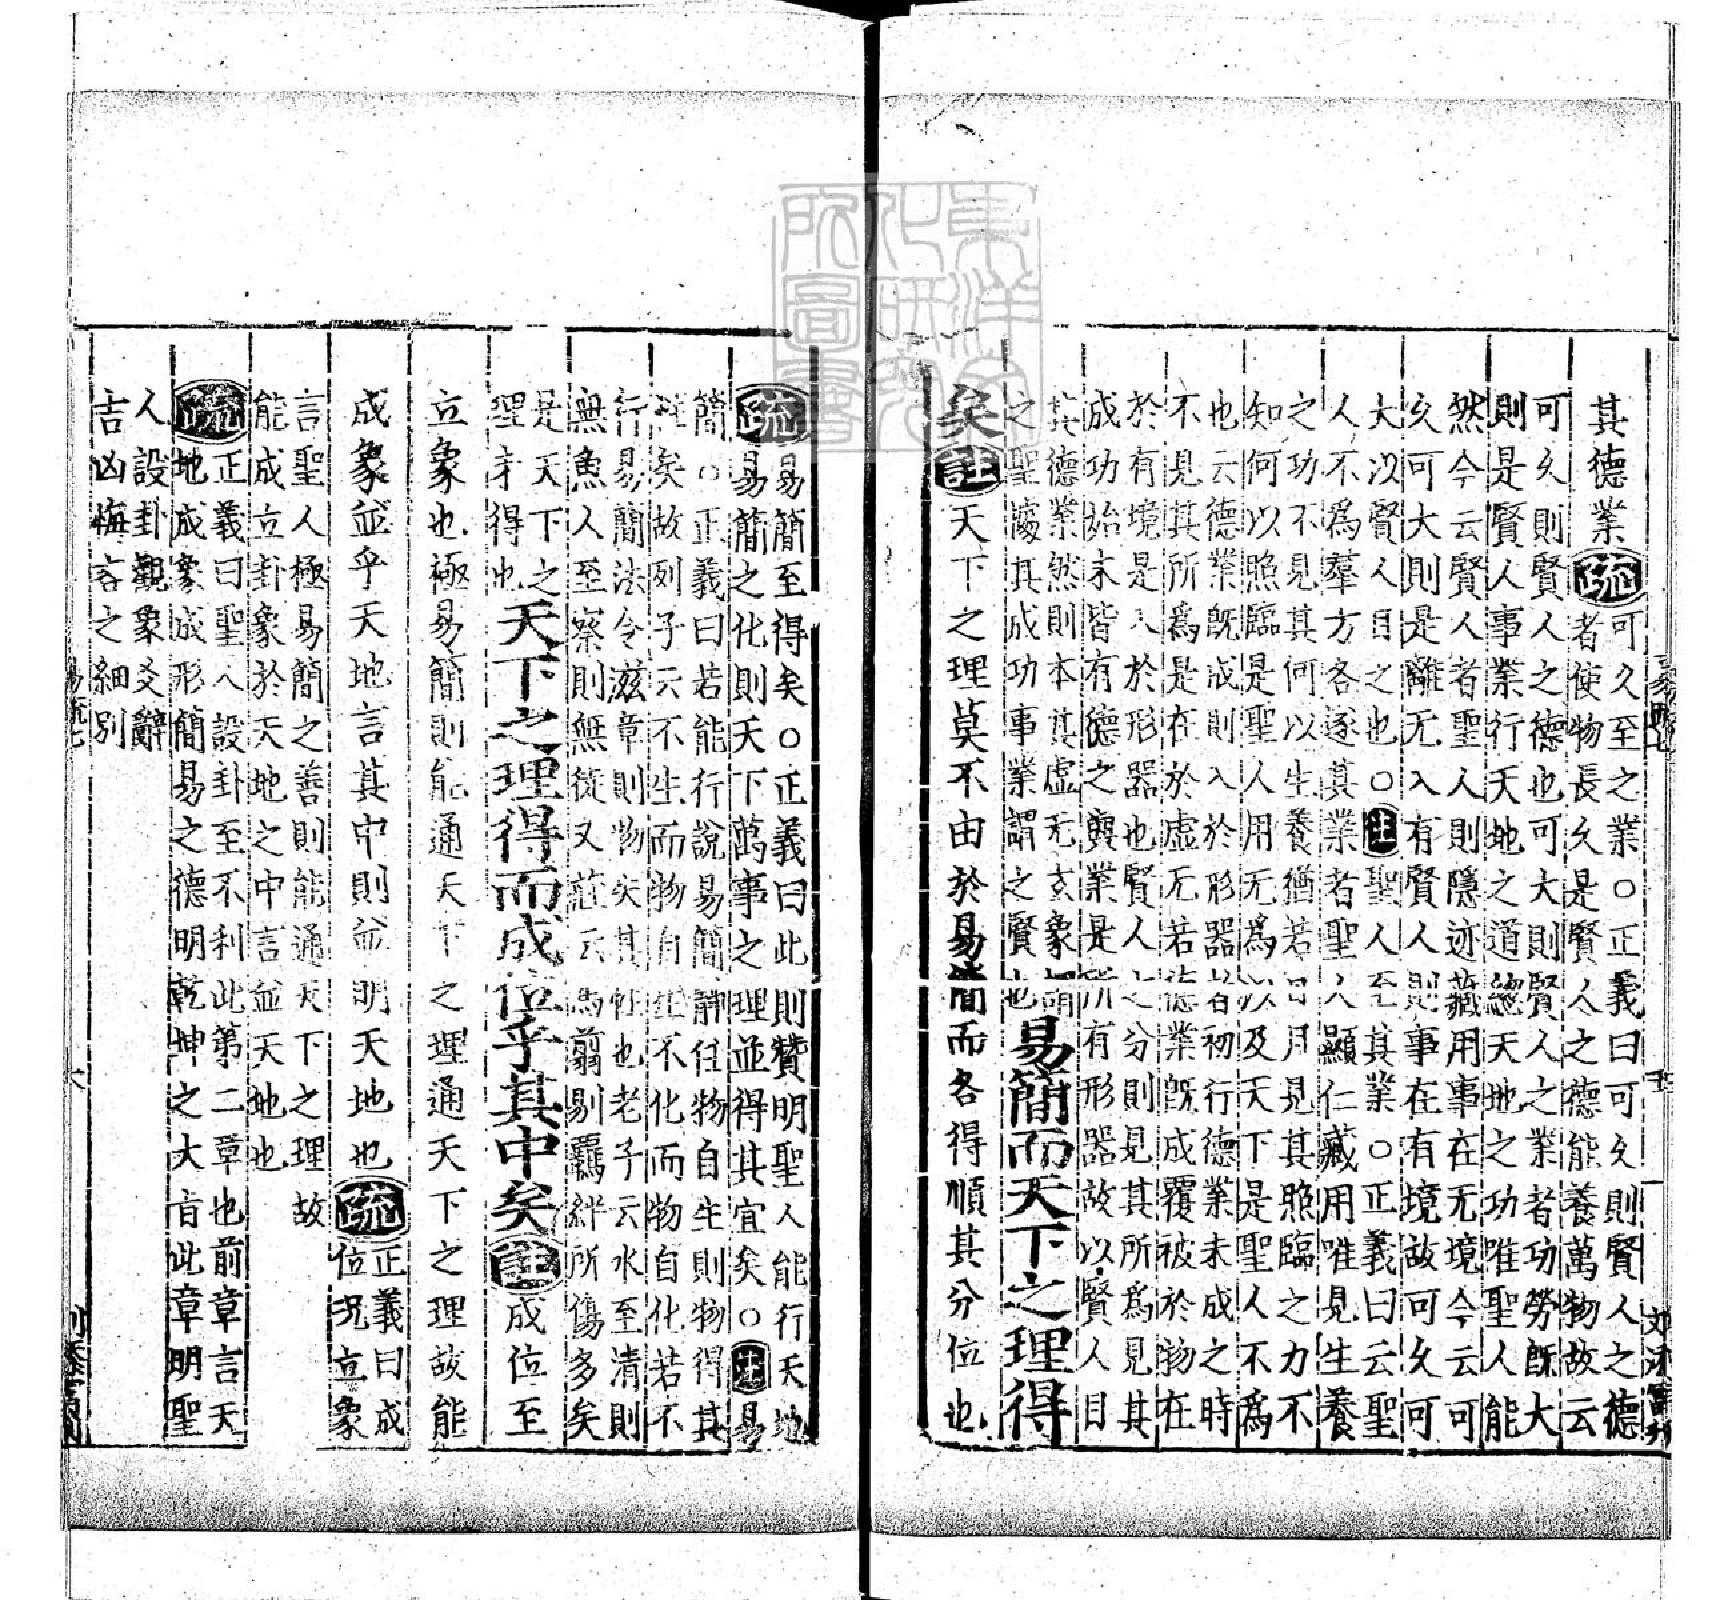 其德業疏可久至之業○正義曰可久則賢人之德
者使物長久是賢人之德能養萬物故云
可久則賢人之德也可大則賢人之業者功勞既大
則是賢人事業行天地之道總天地之功唯聖人能
然今云賢人者聖人則隱迹藏用事在无境今云可
久可大則是離无入有賢人則事在有境故可久可
大以賢人目之也○注聖人至其業○正義曰云聖
人不爲羣方各遂其業者聖人顯仁藏用唯見生養
之功不見其何以生養猶若日月見其照臨之力不
知何以照臨是聖人用无爲以及天下是聖人不爲
也云德業既成則入於形器者初行德業未成之時
不見其所爲是在於虛无若德業既成覆被於物在
於有境是入於形器也賢人之分則見其所爲見其
成功始末皆有德之與業是所有形器故以賢人目
其德業然則本其虛无玄象謂
之聖據其成功事業謂之賢也易簡而天下之理得
矣注天下之理莫不由於易簡而各得順其分位也
疏易簡至得矣○正義曰此則贊明聖人能行天地
易簡之化則天下萬事之理並得其宜矣○注易
簡○正義曰若能行說易簡靜任物自生則物得其
性矣故列子云不生而物自生不化而物自化若不
行易簡法令滋章則物失其性也老子云水至清則
無魚人至察則無徒又莊云馬翦剔羈絆所傷多矣
是天下之
理才得也天下之理得而成位乎其中矣注成位至
立象也極易簡則能通天下之理通天下之理故能
成象並乎天地言其中則並明天地也疏正義曰成
位况立象
言聖人極易簡之善則能通天下之理故
能成立卦象於天地之中言並天地也
疏正義曰聖人設卦至不利此第二章也前章言天
地成象成形簡易之德明乾坤之大旨此章明聖
人設卦觀象爻辭
吉凶悔吝之細別